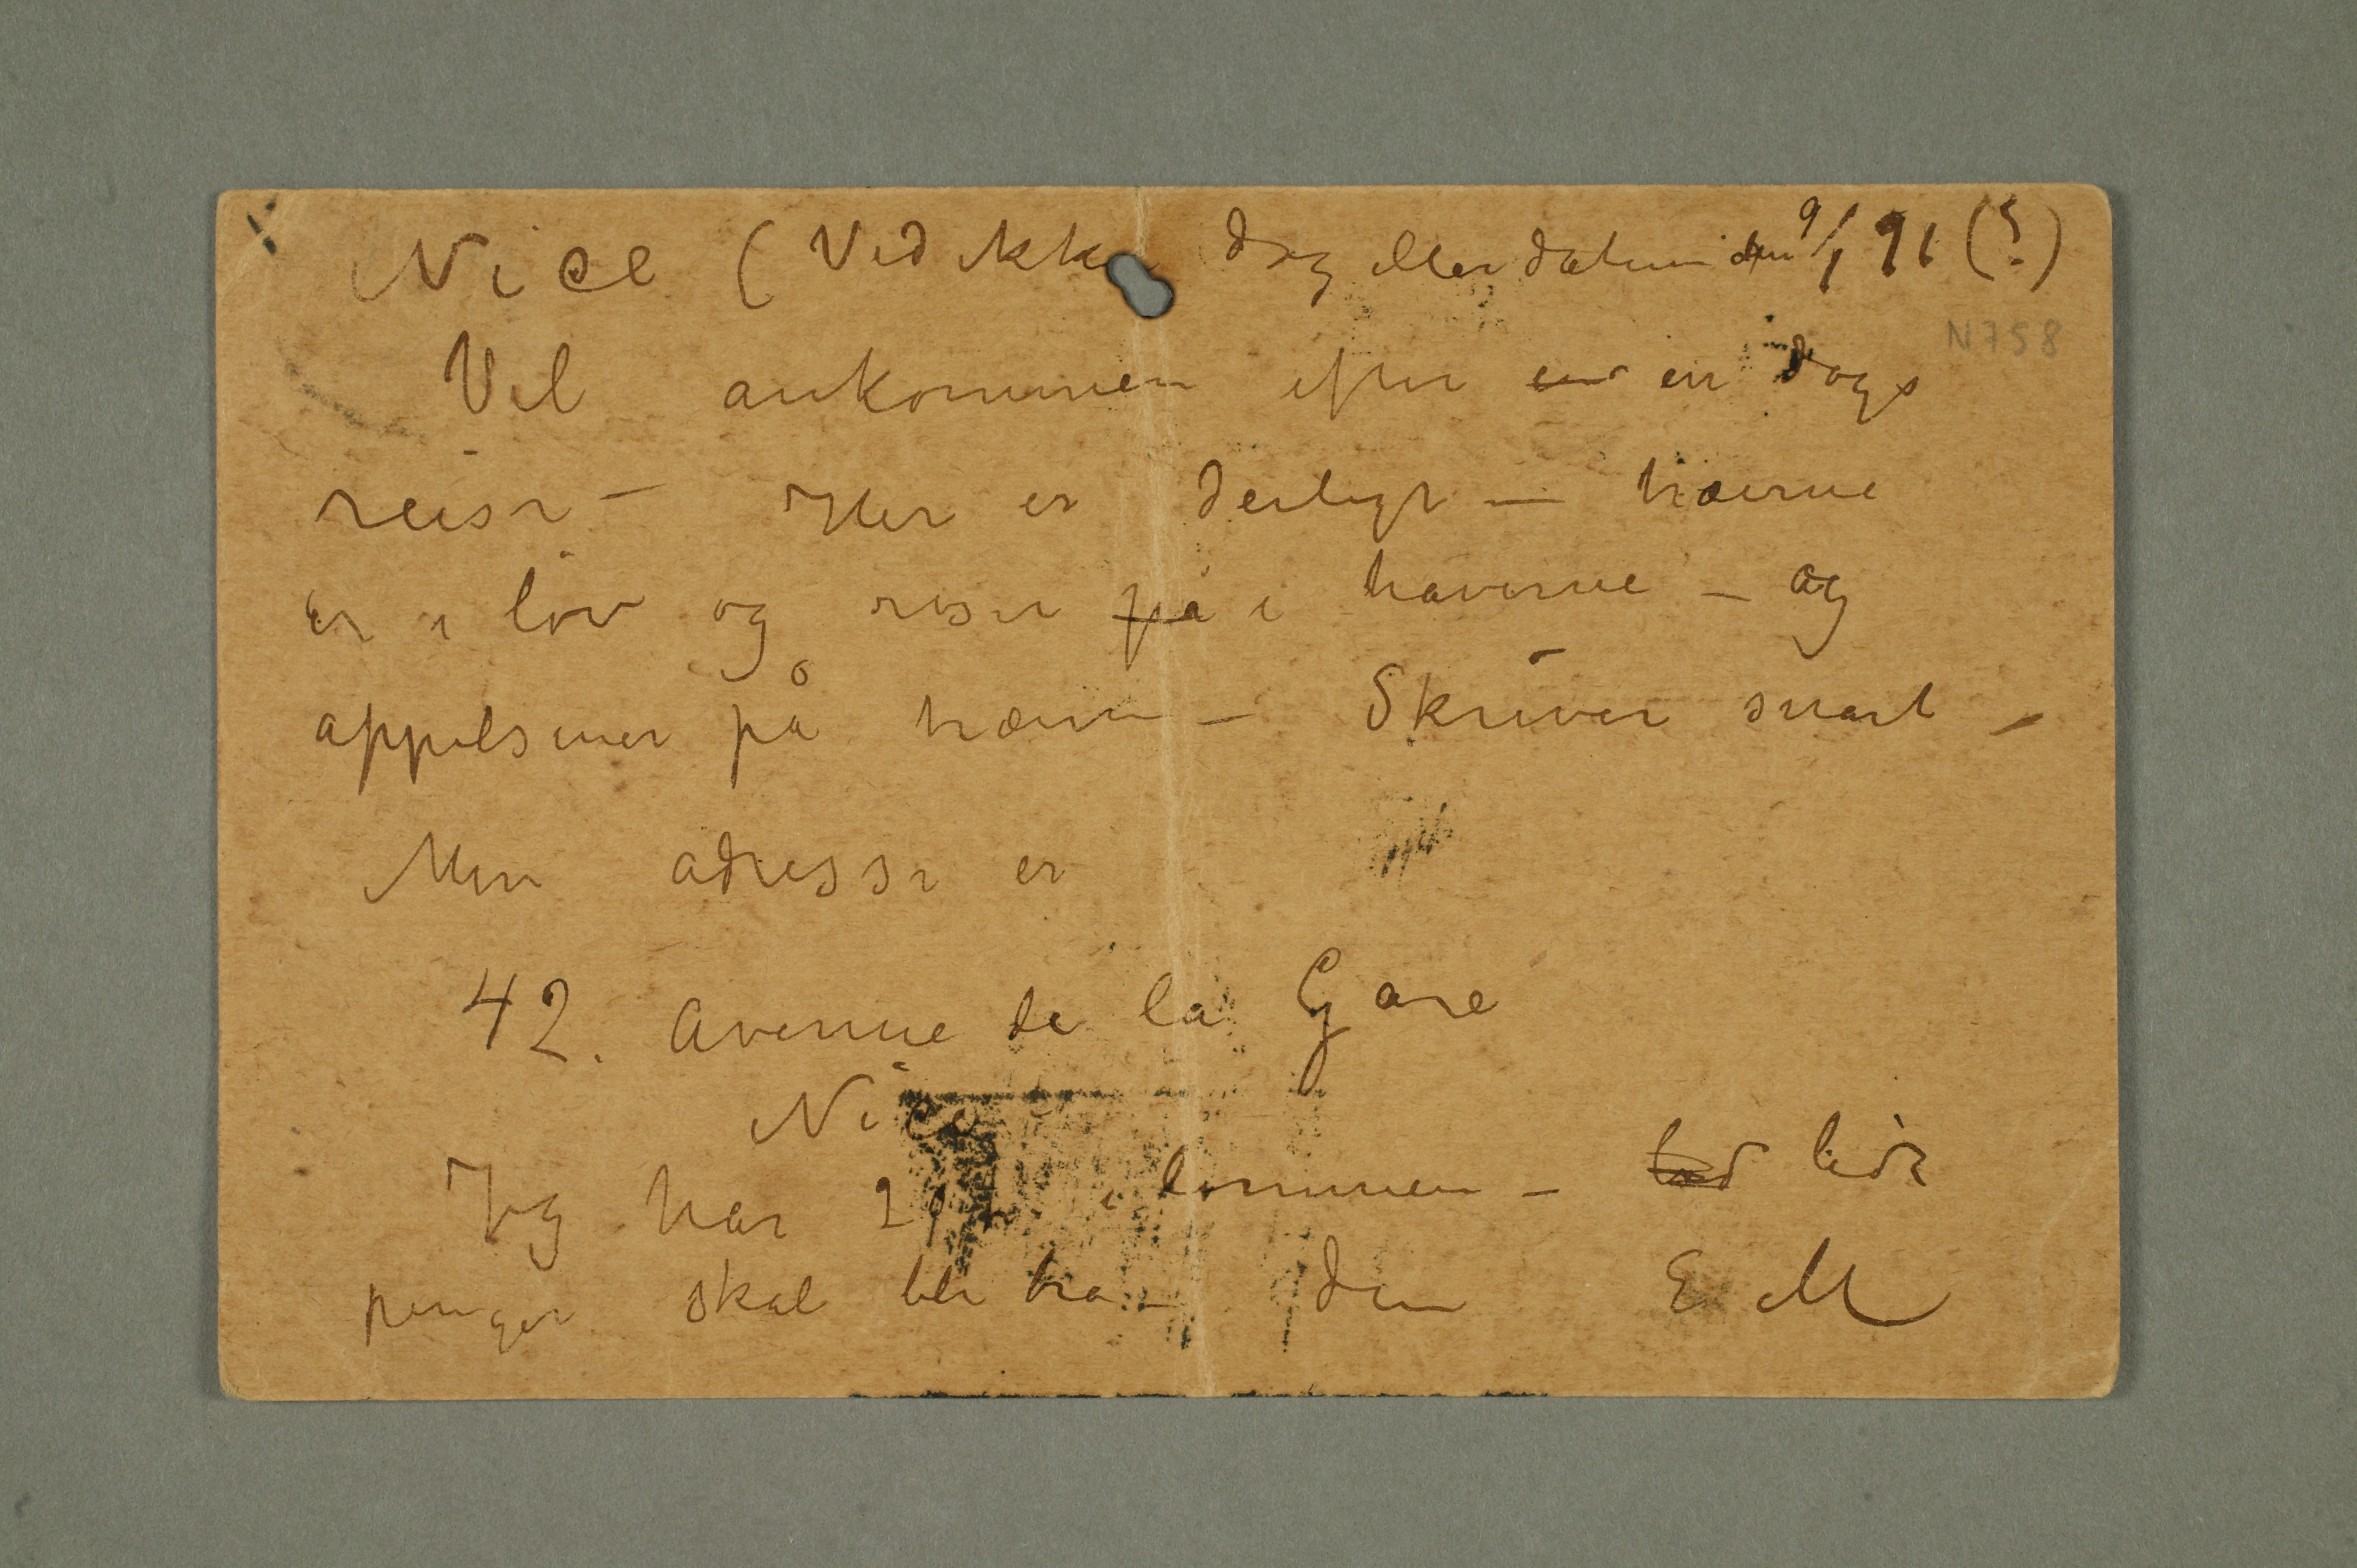 Nice (Ved ikke dag eller datum den 9/1 91 (?)
N758
Vel ankommen efter en en dags
reise – Her er deiligt – træerne
er i løv og roser på i haverne – og
appelsiner på træerne – Skriver snart –
Min adresse er
42. Avenue de la Gare
Nice
Jeg har i lommen – lidt
penger skal bli bra – din E M